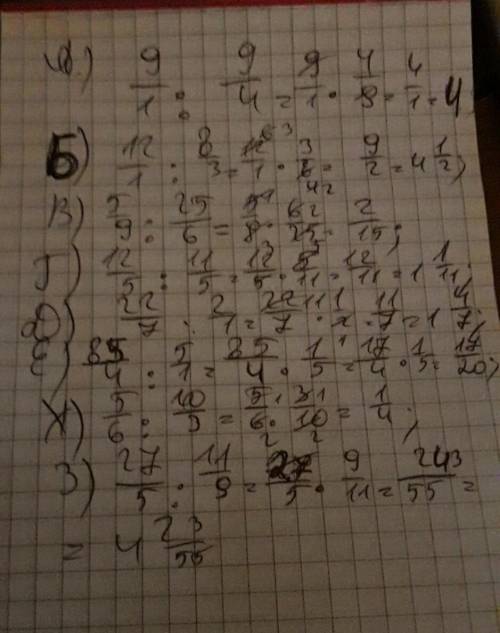 а) 9/1 : 9/4 = 9/1 · 4/9 = 4/1 = 4
Б) 12/1 : 8/3 = 12/1 · 3/8 = 9/2 = 4 1/2;
В) 5/9 : 25/6 = 5/9 · 6/25 = 2/15;
Г) 12/5 : 11/5 = 12/5 · 5/11 = 12/11 = 1 1/11;
Д) 22/7 : 2/1 = 22/7 · 1/2 = 11/7 = 1 4/7;
Е) 85/4 : 5/1 = 85/4 · 1/5 = 17/4 · 1/5 = 17/20;
Ж) 5/6 : 10/3 = 5/6 · 3/10 = 1/4;
З) 27/5 : 11/9 = 27/5 · 9/11 = 243/55 =
= 4 23/55